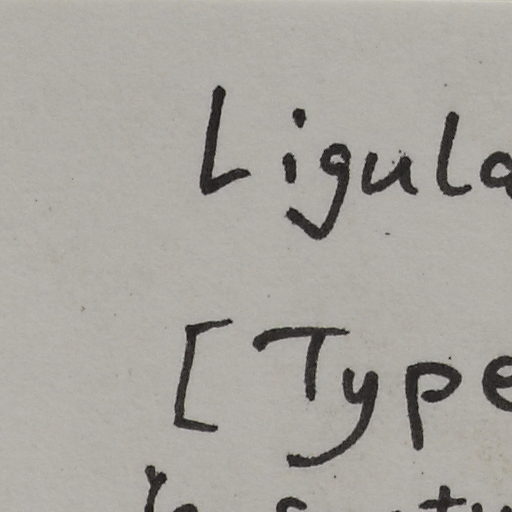 Ligula
[Type